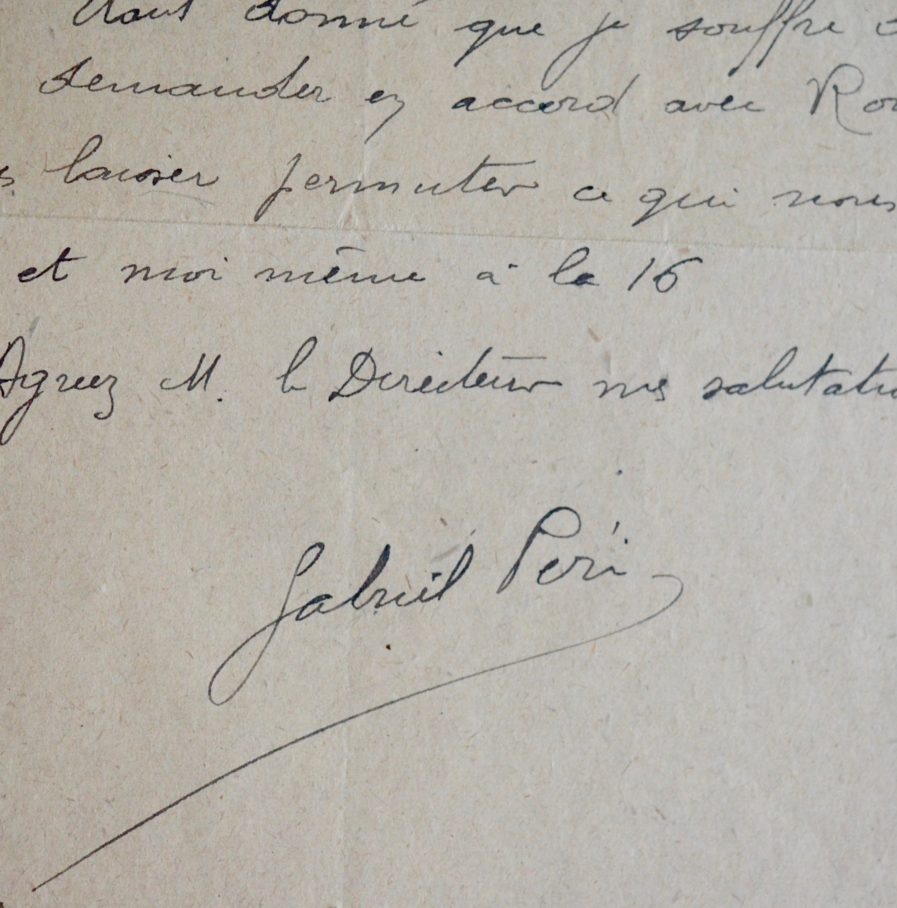 étant donné que je souffre
demander en accord avec
laisser permuter ce qui nous
et moi même à la 16
Agréez M. le Directeur mes salutatio
Gabriel Péri